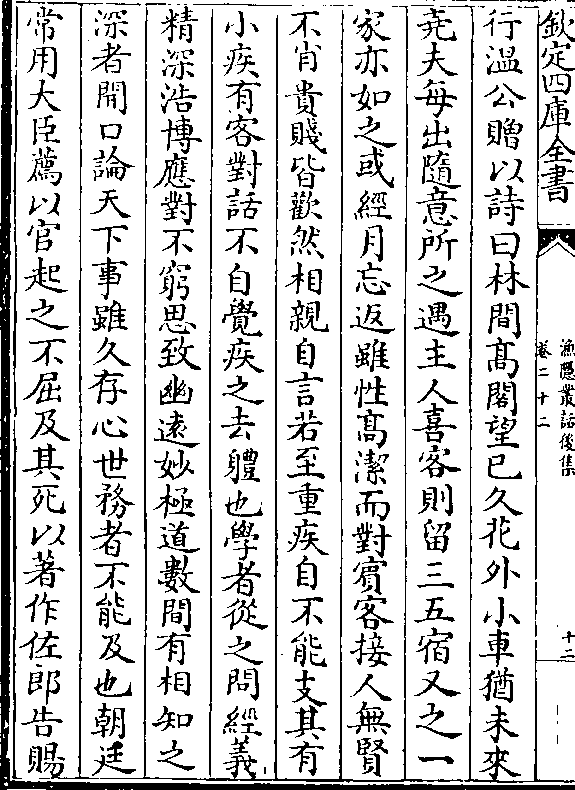 欽定四庫全書
漁隱叢話後集
卷二十二
十二
行溫公贈以詩曰林間髙閣望已久花外小車猶未來
堯夫每出隨意所之遇主人喜客則留三五宿又之一
家亦如之或經月忘返雖性髙潔而對賓客接人無賢
不肖貴賤皆歡然相親自言若至重疾自不能支其有
小疾有客對話不自覺疾之去體也學者從之問經義
精深浩博應對不窮思致幽遠妙極道數間有相知之
深者開口論天下事雖久存心世務者不能及也朝廷
常用大臣薦以官起之不屈及其死以著作佐郎告賜